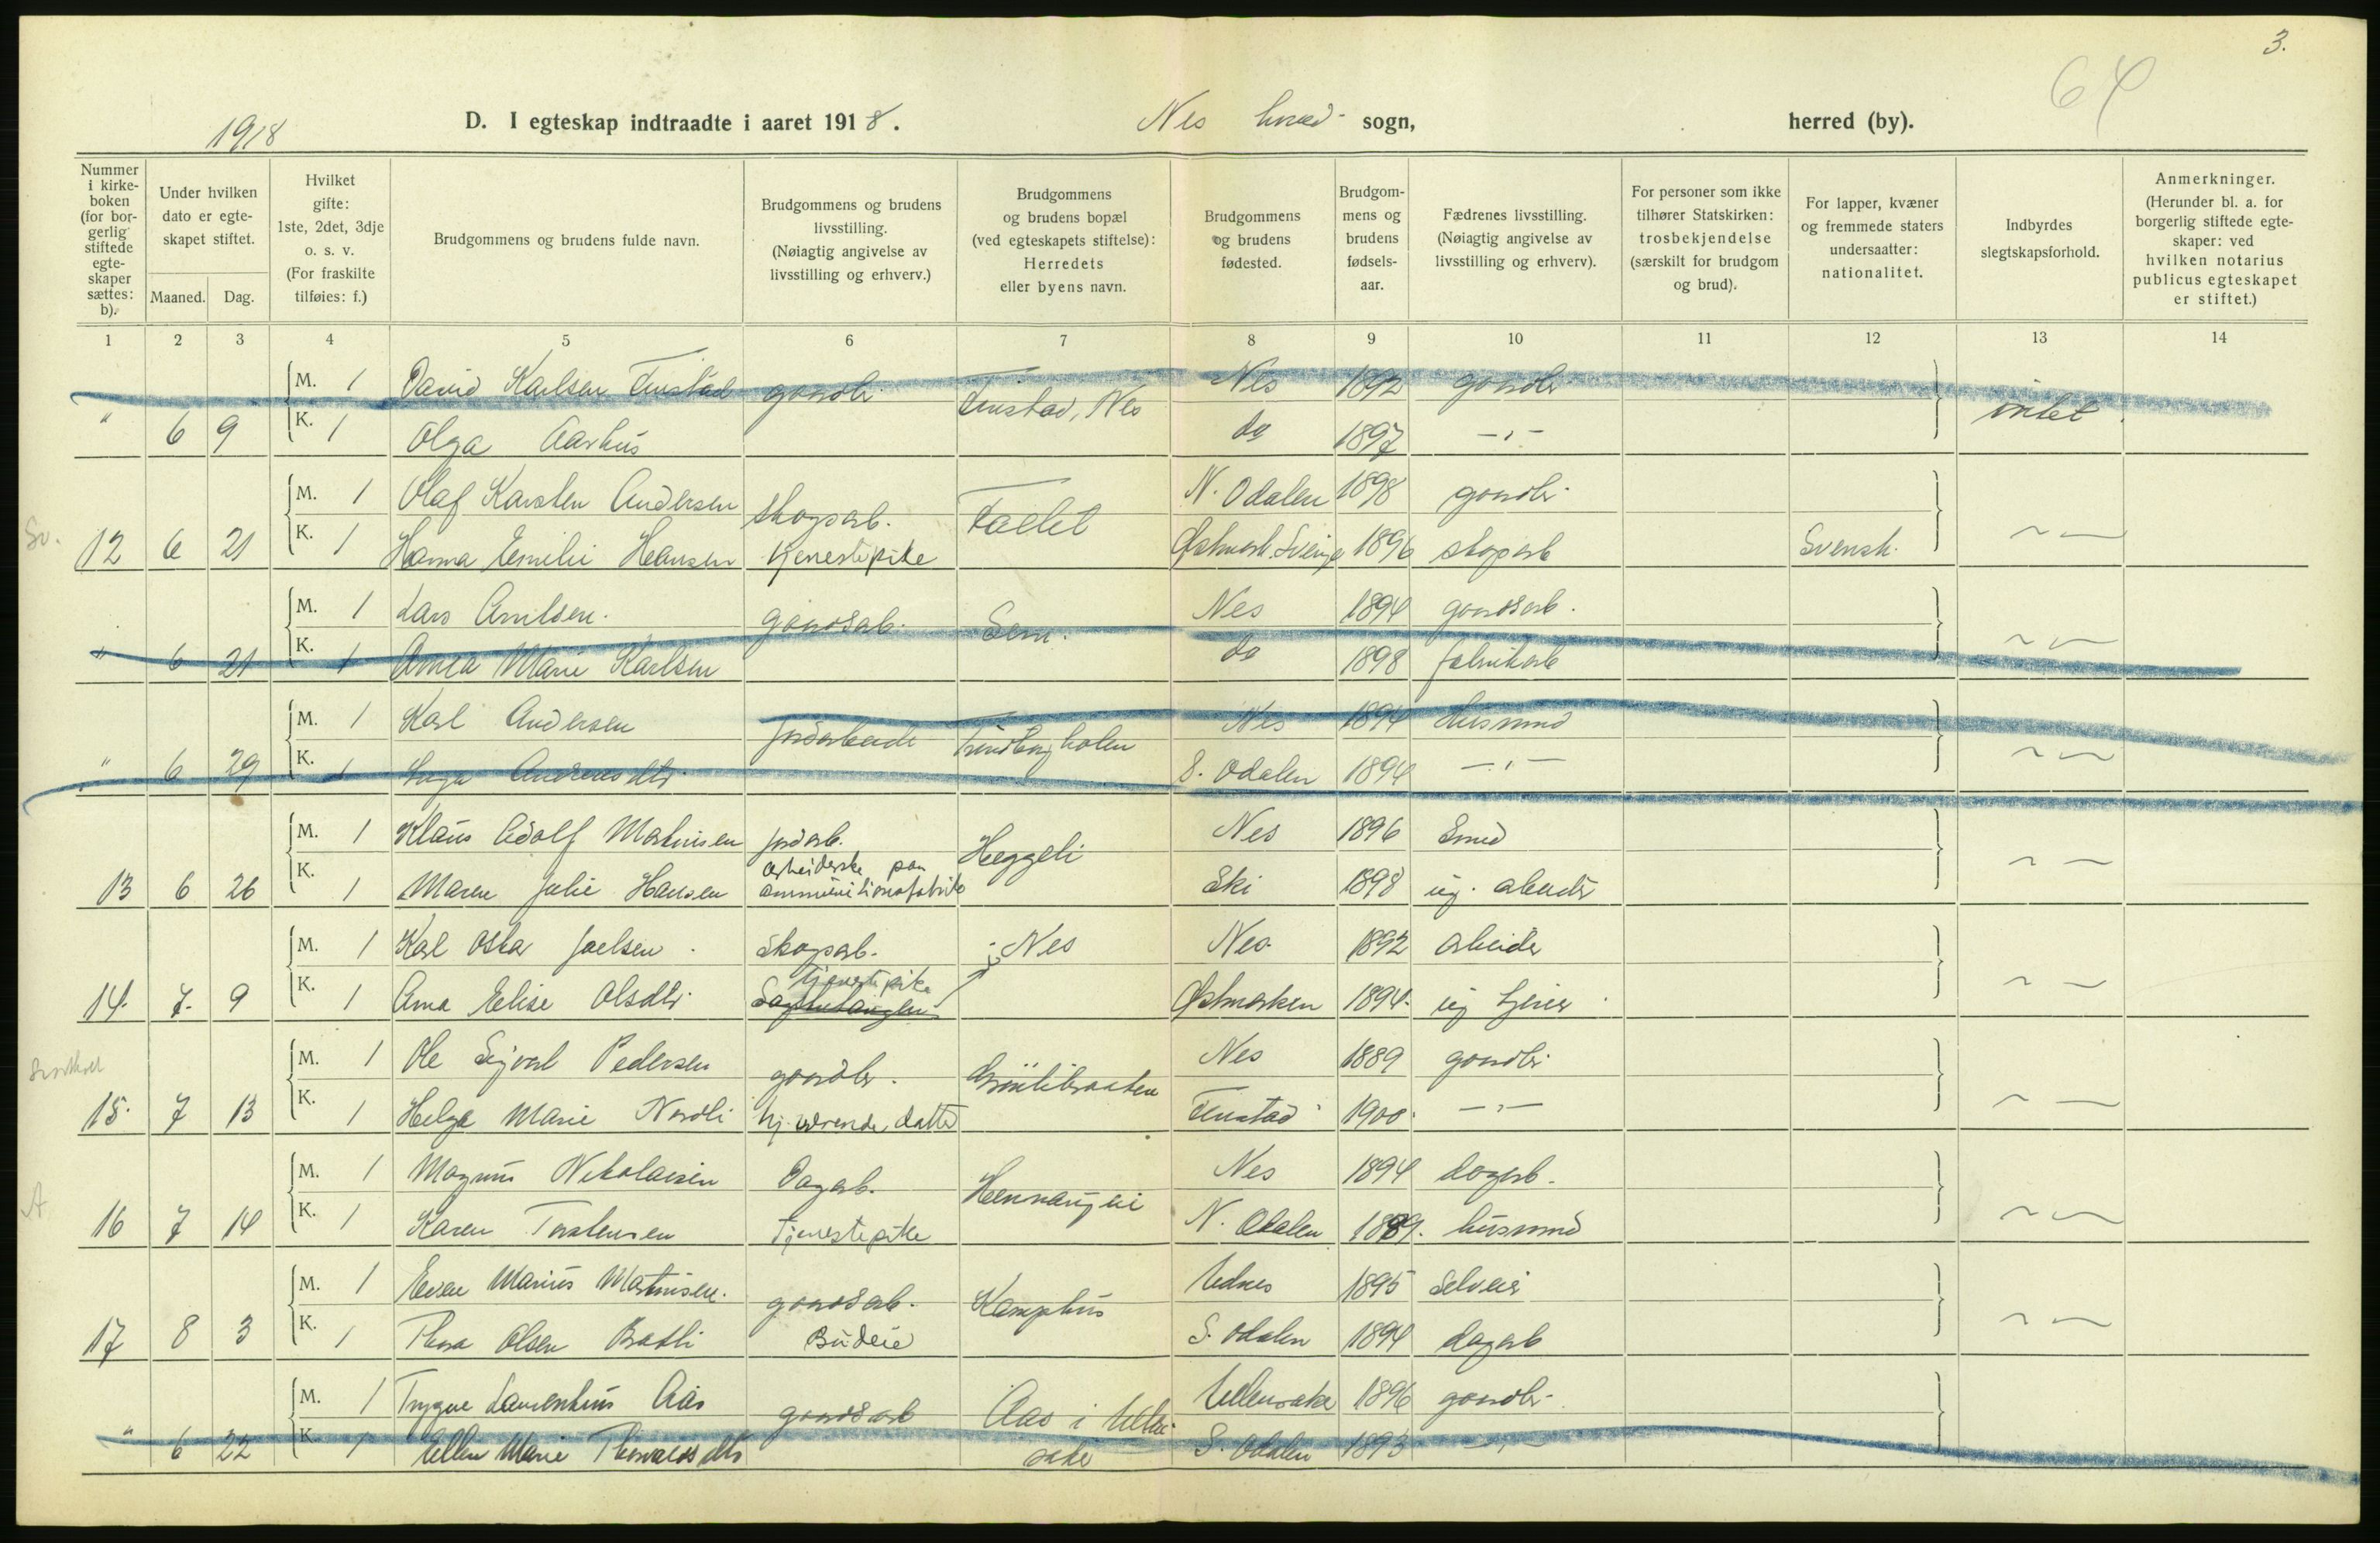 3.
64
1918
D. I egteskap indtraadte i aaret 1918. Nes hered sogn, herred (by).
Nummer i kirke-boken (for bor-gerlig stiftede egte-skaper sættes: b).
Under hvilken dato er egte-skapet stiftet.
Maaned. Dag.
Hvilket gifte: 1ste, 2det, 3dje o. s. v. (For fraskilte tilføies: f.)
Brudgommens og brudens fulde navn.
Brudgommens og brudens livsstilling. (Nøiagtig angivelse av livsstilling og erhverv.)
Brudgommens og brudens bopæl (ved egteskapets stiftelse): Herredets eller byens navn.
Brudgommens og brudens fødested.
Brudgom-mens og brudens fødsels-aar.
Fædrenes livsstilling. (Nøiagtig angivelse av livsstilling og erhverv).
For personer som ikke tilhører Statskirken: trosbekjendelse (særskilt for brudgom og brud).
For lapper, kvæner og fremmede staters undersaatter: nationalitet.
Indbyrdes slegtskapsforhold.
Anmerkninger. (Herunder bl. a. for borgerlig stiftede egte-skaper: ved hvilken notarius publicus egteskapet er stiftet.)
1 2 3 4 5 6 7 8 9 10 11 12 13 14
M. 1 David Karlsen Finstad gaardbr. Finstad, Nes Nes 1892 gaardbr intet
" 6 9 K. 1 Olga Aarhus do 1897 -"-
M. 1 Olaf Karsten Andersen skogsarb. Faellet N. Odalen 1898 gaardbr.
Sv. 12 6 21 K. 1 Hanna Emilie Hansen tjenestepike Østmark. Sverige 1896 skogarb Svensk. ~ —
M. 1 Lars Arnlsen. gaardsarb. Sem. Nes 1894 gaardsarb. ~ —
" 6 21 K. 1 Anna Marie Karlsen do 1898 fabrikarb
M. 1 Karl Andersen jordarbeide Nes 1894 husmand
" 6 29 K. 1 Inga Andreasdtr. S. Odalen 1894 -"- ~ —
M. 1 Klaus Adolf Martinsen jordarb. Heggeli Nes 1896 Smed
13 6 26 K. 1 Maren Julie Hansen arbeiderske paa ammunitionsfabrik Ski 1898 ug. arbeider ~ —
M. 1 Karl Oskar Joelsen skogsarb. Nes Nes 1892 arbeider
14. 7. 9 K. 1 Anna Elise Olsdtr. tjenestepike Østmarken 1894. ug ~ —
M. 1 Ole Sigvart Pedersen gaardbr. Nes 1889 gaardbr.
15. 7 13 K. 1 Helga Marie Nordli hj. værende datter Finstad 1900. -"- ~ —
M. 1 Magnus Nikolaisen Dagarb. Nes 1894 dagarb.
A 16 7 14 K. 1 Karen Torstensen Tjenestepike N. Odalen 1889. husmand ~ —
M. 1 Even Marius Martinsen. gaardsarb. Kamphus Udnes 1895 Selveier
17 8 3 K. 1 Thora Olsen Budeie S. Odalen 1894 dagarb ~ —
M. 1 Trygve Laurentius Aas gaardsarb Aas i Ullensaker Ullensaker 1896 gaardbr.
" 6 22 K. 1 Ellen Marie Thorvaldsdtr S. Odalen 1893 -"-